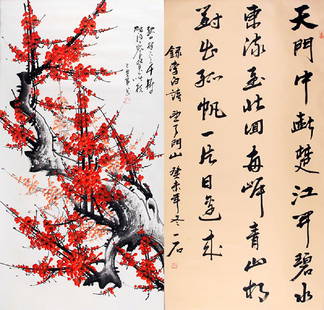 天門中斷楚江開碧水
東流至北回兩岸青山相
對出孤帆一片日邊來
錄李白詩望天門山癸未年冬一石